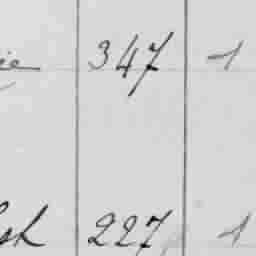 ie 347 1
sh 227 1